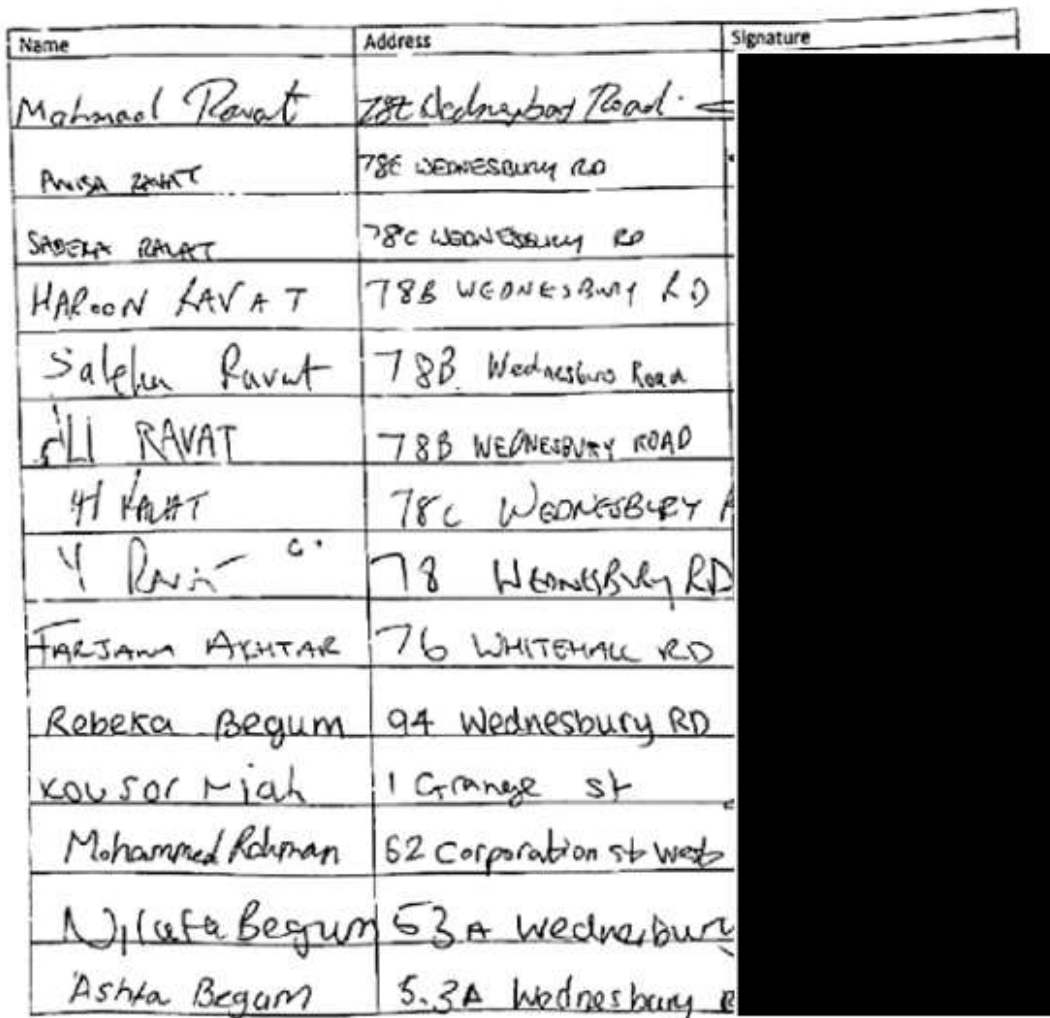 Name Address Signature
Mahmad Ravat 78C Wednesbury Road
ANISA RAVAT 78C WEDNESBURY RD
SABERA RAVAT 78C WEDNESBURY RD
HAROON RAVAT 78B WEDNESBURY RD
Saleha Ravat 78B Wednesbury Road
ALI RAVAT 78B WEDNESBURY ROAD
RAVAT 78C WEDNESBURY
Y 78 WEDNESBURY RD
FARJANA AKHTAR 76 WHITEHALL RD
Rebeka Begum 94 Wednesbury RD
Kousor Miah 1 Grange st
Mohammed Rahman 62 Corporation st West
Begum 53A Wednesbury
Begum 53A Wednesbury